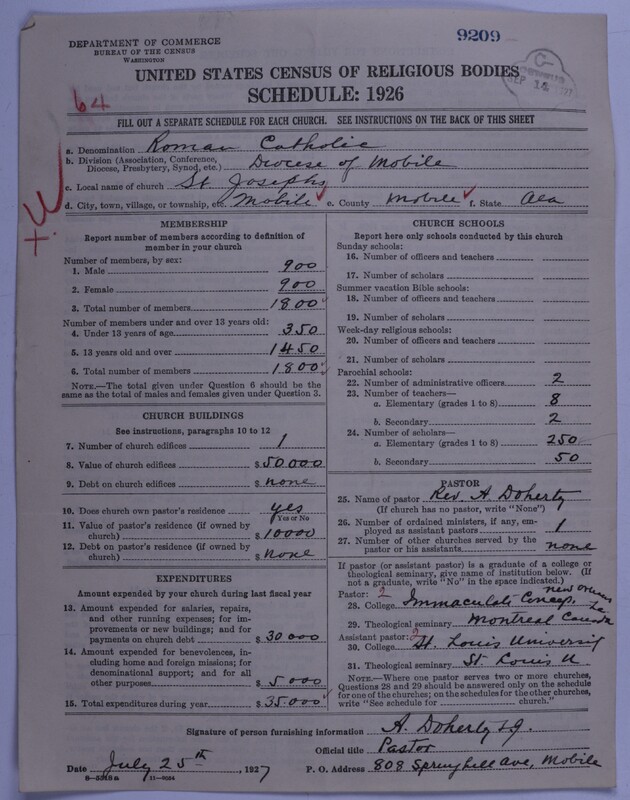 9209
DEPARTMENT OF COMMERCE
BUREAU OF THE CENSUS
WASHINGTON
SEP 14
64
UNITED STATES CENSUS OF RELIGIOUS BODIES
SCHEDULE: 1926
FILL OUT A SEPARATE SCHEDULE FOR EACH CHURCH. SEE INSTRUCTIONS ON THE BACK OF THIS SHEET
a. Denomination Roman Catholic
b. Division (Association, Conference, Diocese, Presbytery, Synod, etc.) Diocese of Mobile
c. Local name of church St Josephs
d. City, town, village, or township, etc. Mobile e. County Mobile f. State Ala
MEMBERSHIP
Report number of members according to definition of
member in your church
Number of members, by sex:
1. Male 900
2. Female 900
3. Total number of members 1800
Number of members under and over 13 years old:
4. Under 13 years of age 350
5. 13 years old and over 1450
6. Total number of members 1800
NOTE.—The total given under Question 6 should be
the same as the total of males and females given under Question 3.
CHURCH BUILDINGS
See instructions, paragraphs 10 to 12
7. Number of church edifices 1
8. Value of church edifices $ 50.000
9. Debt on church edifices $ none
10. Does church own pastor's residence? yes
(Yes or No)
11. Value of pastor's residence (if owned by
church) $ 10000
12. Debt on pastor's residence (if owned by
church) $ None
EXPENDITURES
Amount expended by your church during last fiscal year
13. Amount expended for salaries, repairs,
and other running expenses; for im-
provements or new buildings; and for
payments on church debt $ 30 000
14. Amount expended for benevolences, in-
cluding home and foreign missions; for
denominational support; and for all
other purposes $ 5 000
15. Total expenditures during year $ 35.000
CHURCH SCHOOLS
Report here only schools conducted by this church
Sunday schools:
16. Number of officers and teachers
17. Number of scholars
Summer vacation Bible schools:
18. Number of officers and teachers
19. Number of scholars
Week-day religious schools:
20. Number of officers and teachers
21. Number of scholars
Parochial schools:
22. Number of administrative officers 2
23. Number of teachers—
a. Elementary (grades 1 to 8) 8
b. Secondary 2
24. Number of scholars—
a. Elementary (grades 1 to 8) 250
b. Secondary 50
PASTOR
25. Name of pastor Rev. A Doherty
(If church has no pastor, write "None")
26. Number of ordained ministers, if any, em-
ployed as assistant pastors 1
27. Number of other churches served by the
pastor or his assistants none
If pastor (or assistant pastor) is a graduate of a college or
theological seminary, give name of institution below. (If
not a graduate, write "No" in the space indicated.)
Pastor: 2
28. College Immaculate Concep. New Orleans La
29. Theological seminary Montreal Canada
Assistant pastor: 2
30. College St. Louis University
31. Theological seminary St. Louis U
NOTE.—Where one pastor serves two or more churches,
Questions 28 and 29 should be answered only on the schedule
for one of the churches; on the schedules for the other churches,
write "See schedule for church."
Signature of person furnishing information A. Doherty S.J.
Official title Pastor
Date July 25th, 1927 P. O. Address 808 Springhill Ave, Mobile